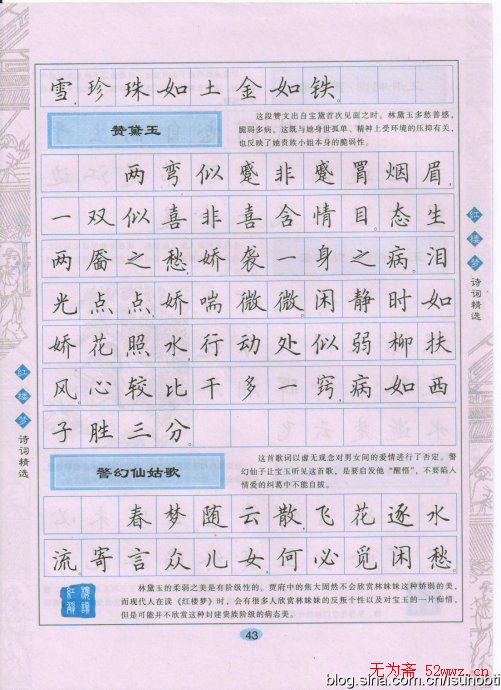 雪,珍珠如土金如铁。
赞黛玉
这段赞文出自宝黛首次见面之时。林黛玉多愁善感,
脆弱多病。这既与她身世孤单、精神上受环境的压抑有关,
也反映了她贵族小姐本身的脆弱性。
两弯似蹙非蹙罥烟眉,
一双似喜非喜含情目。态生
两靥之愁,娇袭一身之病。泪
光点点,娇喘微微。闲静时如
娇花照水,行动处似弱柳扶
风。心较比干多一窍,病如西
子胜三分。
警幻仙姑歌
这首歌词以虚无观念对男女间的爱情进行了否定。警
幻仙子让宝玉听见这首歌,是要启发他“醒悟”,不要陷入
情爱的纠葛中不能自拔。
春梦随云散,飞花逐水
流。寄言众儿女,何必觅闲愁。
林黛玉的柔弱之美是有阶级性的。贾府中的焦大固然不会欣赏林妹妹这种娇弱的美,
而现代人在读《红楼梦》时,会有很多人欣赏林妹妹的反叛个性以及对宝玉的一片痴情,
但是可能并不欣赏这种封建贵族阶级的病态美。
43
红楼梦
诗词精选
红楼梦
诗词精选
无为斋 52wwz.cn
blog.sina.com.cn/lsuhobti